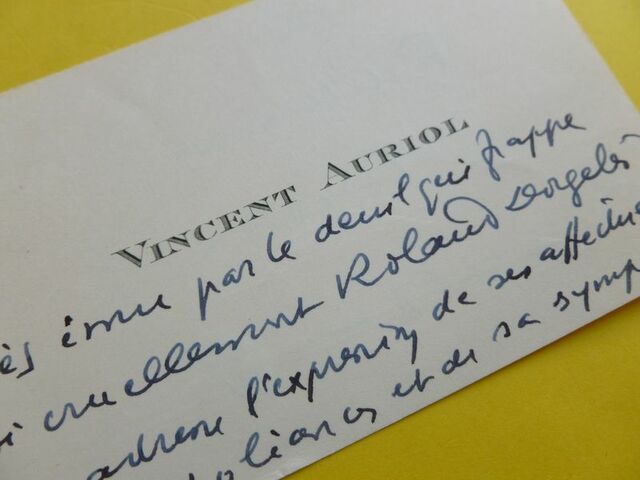 VINCENT AURIOL
ès émue par le deuil qui frappe
si cruellement Roland Dorgelès
adresse l'expression de ses affectue
oléances et de sa symp